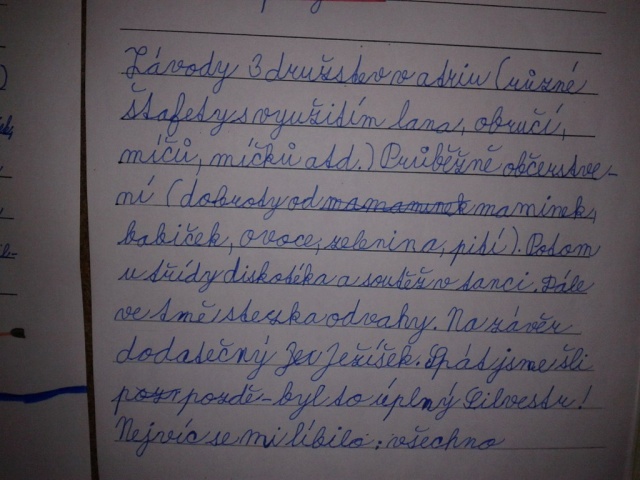 Závody 3 družstev v atriu (různé
štafety s využitím lana, obručí,
míčů, míčků atd.) Průběžně občerstve-
ní (dobroty od mamamnek maminek,
babiček, ovoce, zelenina, pití). Potom
u třídy diskotéka a soutěž v tanci. Dále
ve tmě stezka odvahy. Na závěr
dodatečný Jež Ježíšek. Spát jsme šli
pozdě - byl to úplný Silvestr!
Nejvíc se mi líbilo: všechno